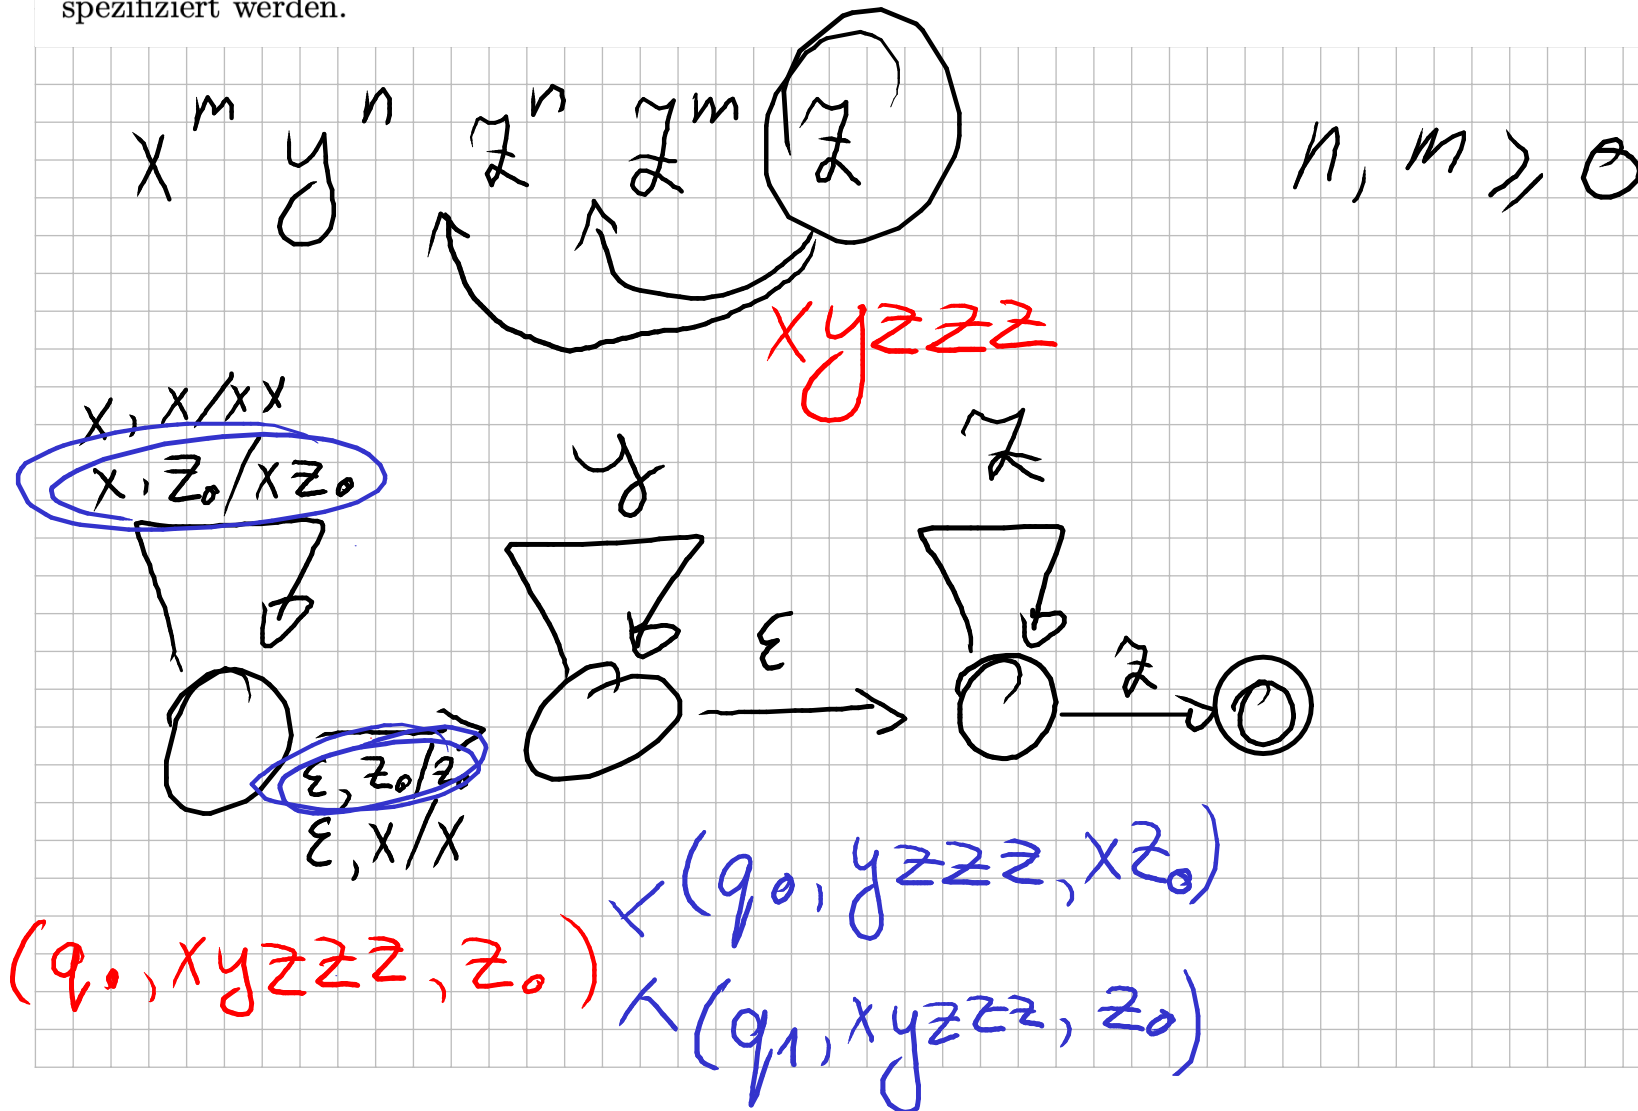 spezifiziert werden.
x^m y^n z^n z^m z n, m ≥ 0
xyzzz
x, x/xx
x, z₀/xz₀
y
z
ε
z
ε, z₀/z₀
ε, x/x
⊢ (q₀, yzzz, xz₀)
(q₀, xyzzz, z₀)
⊢ (q₁, xyzzz, z₀)